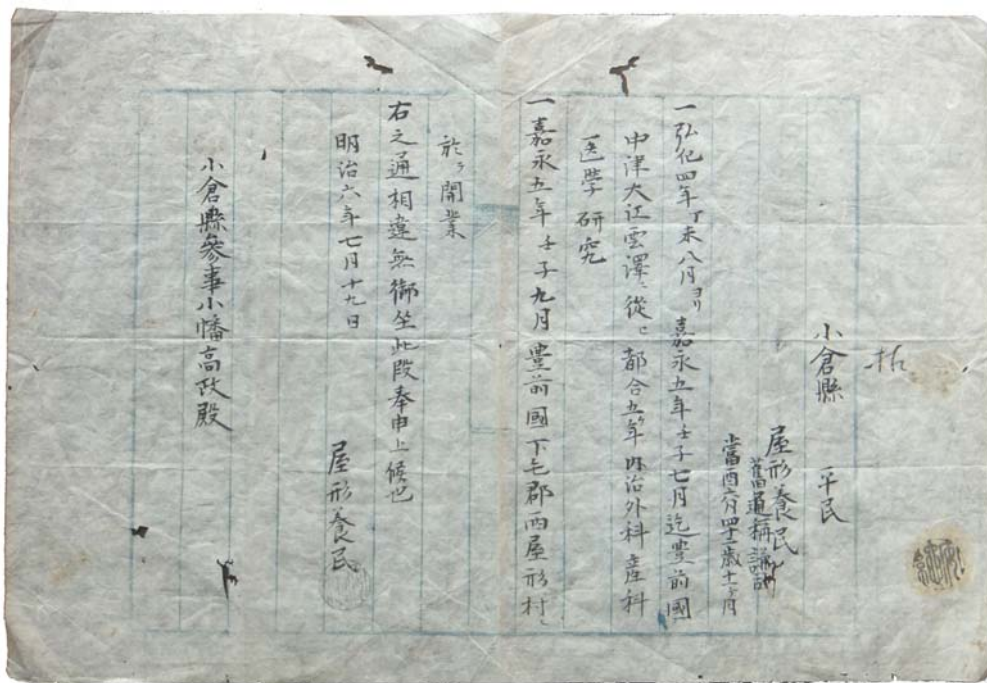 小倉縣　平民
屋形養民
舊通稱諭
當酉六月四十二歳十一ヶ月
一弘化四年丁未八月ヨリ嘉永五年壬子七月迄豊前國
中津大江雲澤ニ從ヒ都合五ケ年内治外科産科
医学研究
一嘉永五年壬子九月豊前國下毛郡西屋形村ニ
於テ開業
右之通相違無御坐此段奉申上候也
明治六年七月十九日
屋形養民
小倉縣参事小幡高政殿